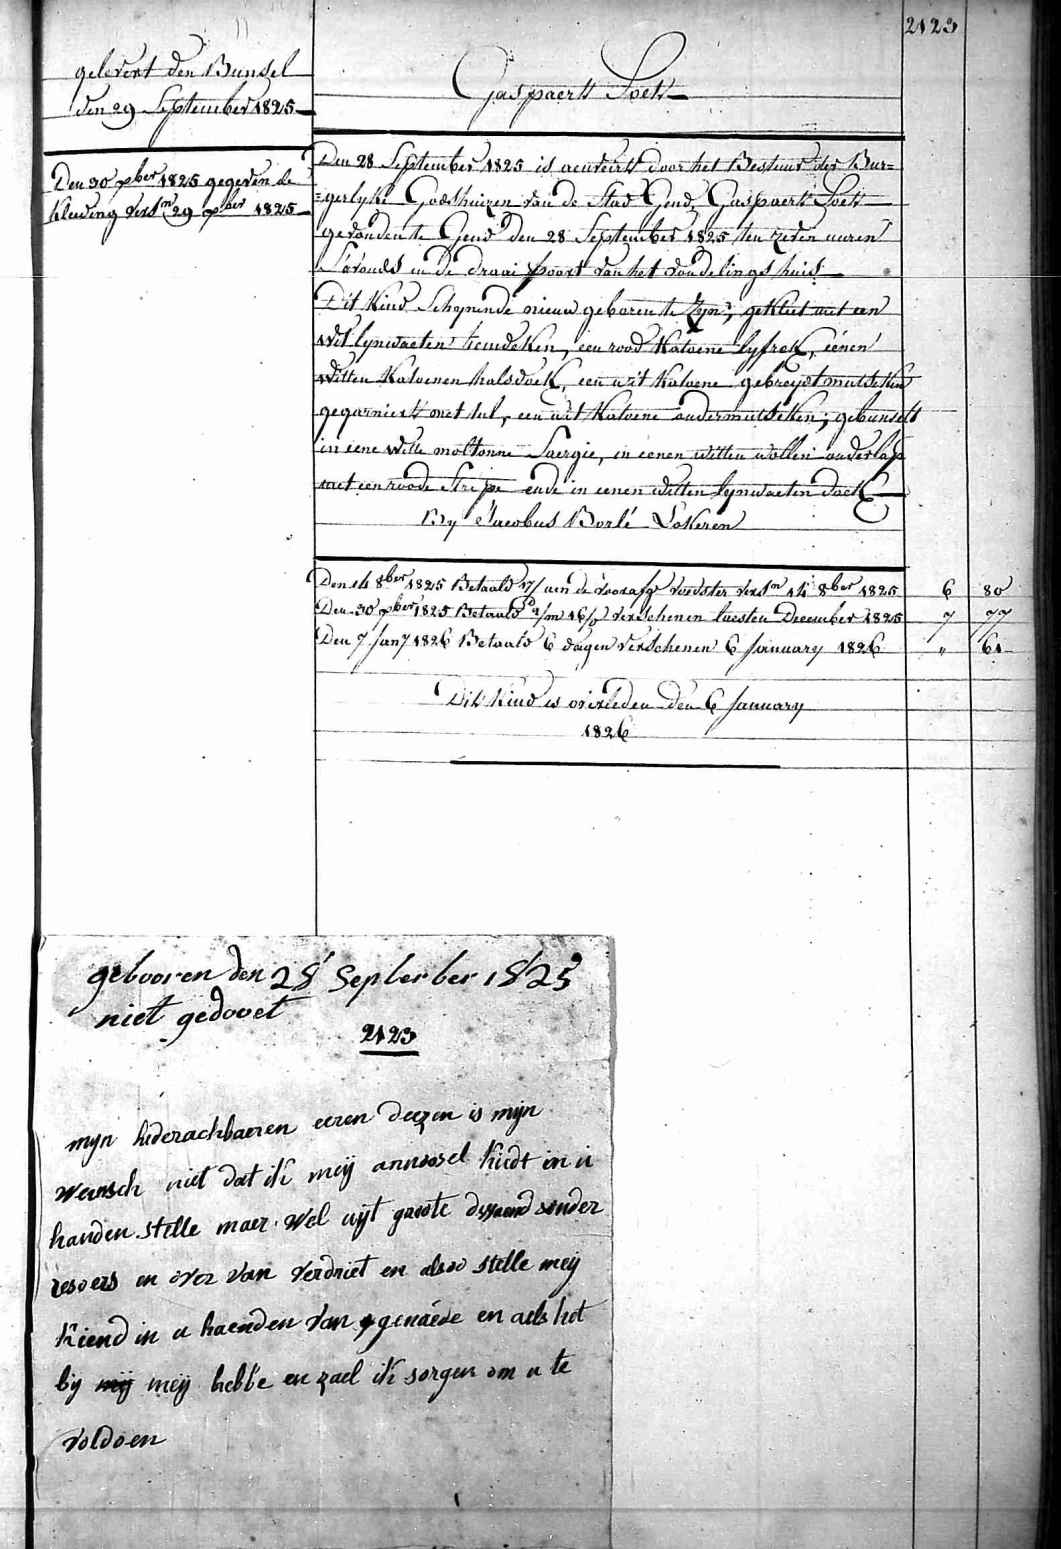 2123
gelevert den Bunsel
den 29 September 1825
Den 30 xber 1825 gegeven de
kleeding versn 29 xber 1825
Gaspaert Soet
Den 28 September 1825 is aenveirt door het Bestuur der Bur=
=gerlyke Godshuizen van de Stad Gend, Gaspaert Soet
gevonden te Gend den 28 September 1825 ten zeven uuren
s'avonds in de draai poort van het vondelingshuis
Dit Kind Schynende nieuw geboren te Zyn; gekleet met een
wit lynwaeten hemdeken, een rood Katoene lyfrok, eénen
witten Katoenen halsdoek, een wit Katoene gebreydt mutseken
gegarniert met tul, een wit Katoene ondermutseken; gebunselt
in eene witte moltonne Saergie, in eenen witten wollen onderlap
met een roode Stripe ende in eenen witten lynwaeten doek
By Jacobus Borlé Lokeren
Den 14 8ber 1825 Betaald 17/ aen de voorafge voedster versn 14 8ber 1825 6 80
Den 30 xber 1825 Betaald 2/m 16/d verschenen laesten December 1825 7 77
Den 7 Jany 1826 Betaald 6 dagen verschenen 6 January 1826 " 61
Dit Kind is overleden den 6 January
1826
gebooren den 28 Septerber 1825
niet gedooet
2123
myn hiderachbaeren eeren deezen is mijn
wensch niet dat ik meij annoosel kiedt in u
handen stelle maer wel uijt groote sonder
resoers en over van verdriet en alsoo stelle meij
kiend in u haenden van genaede en aels het
by mij meij hebbe en zael ik sorgen om u te
voldoen